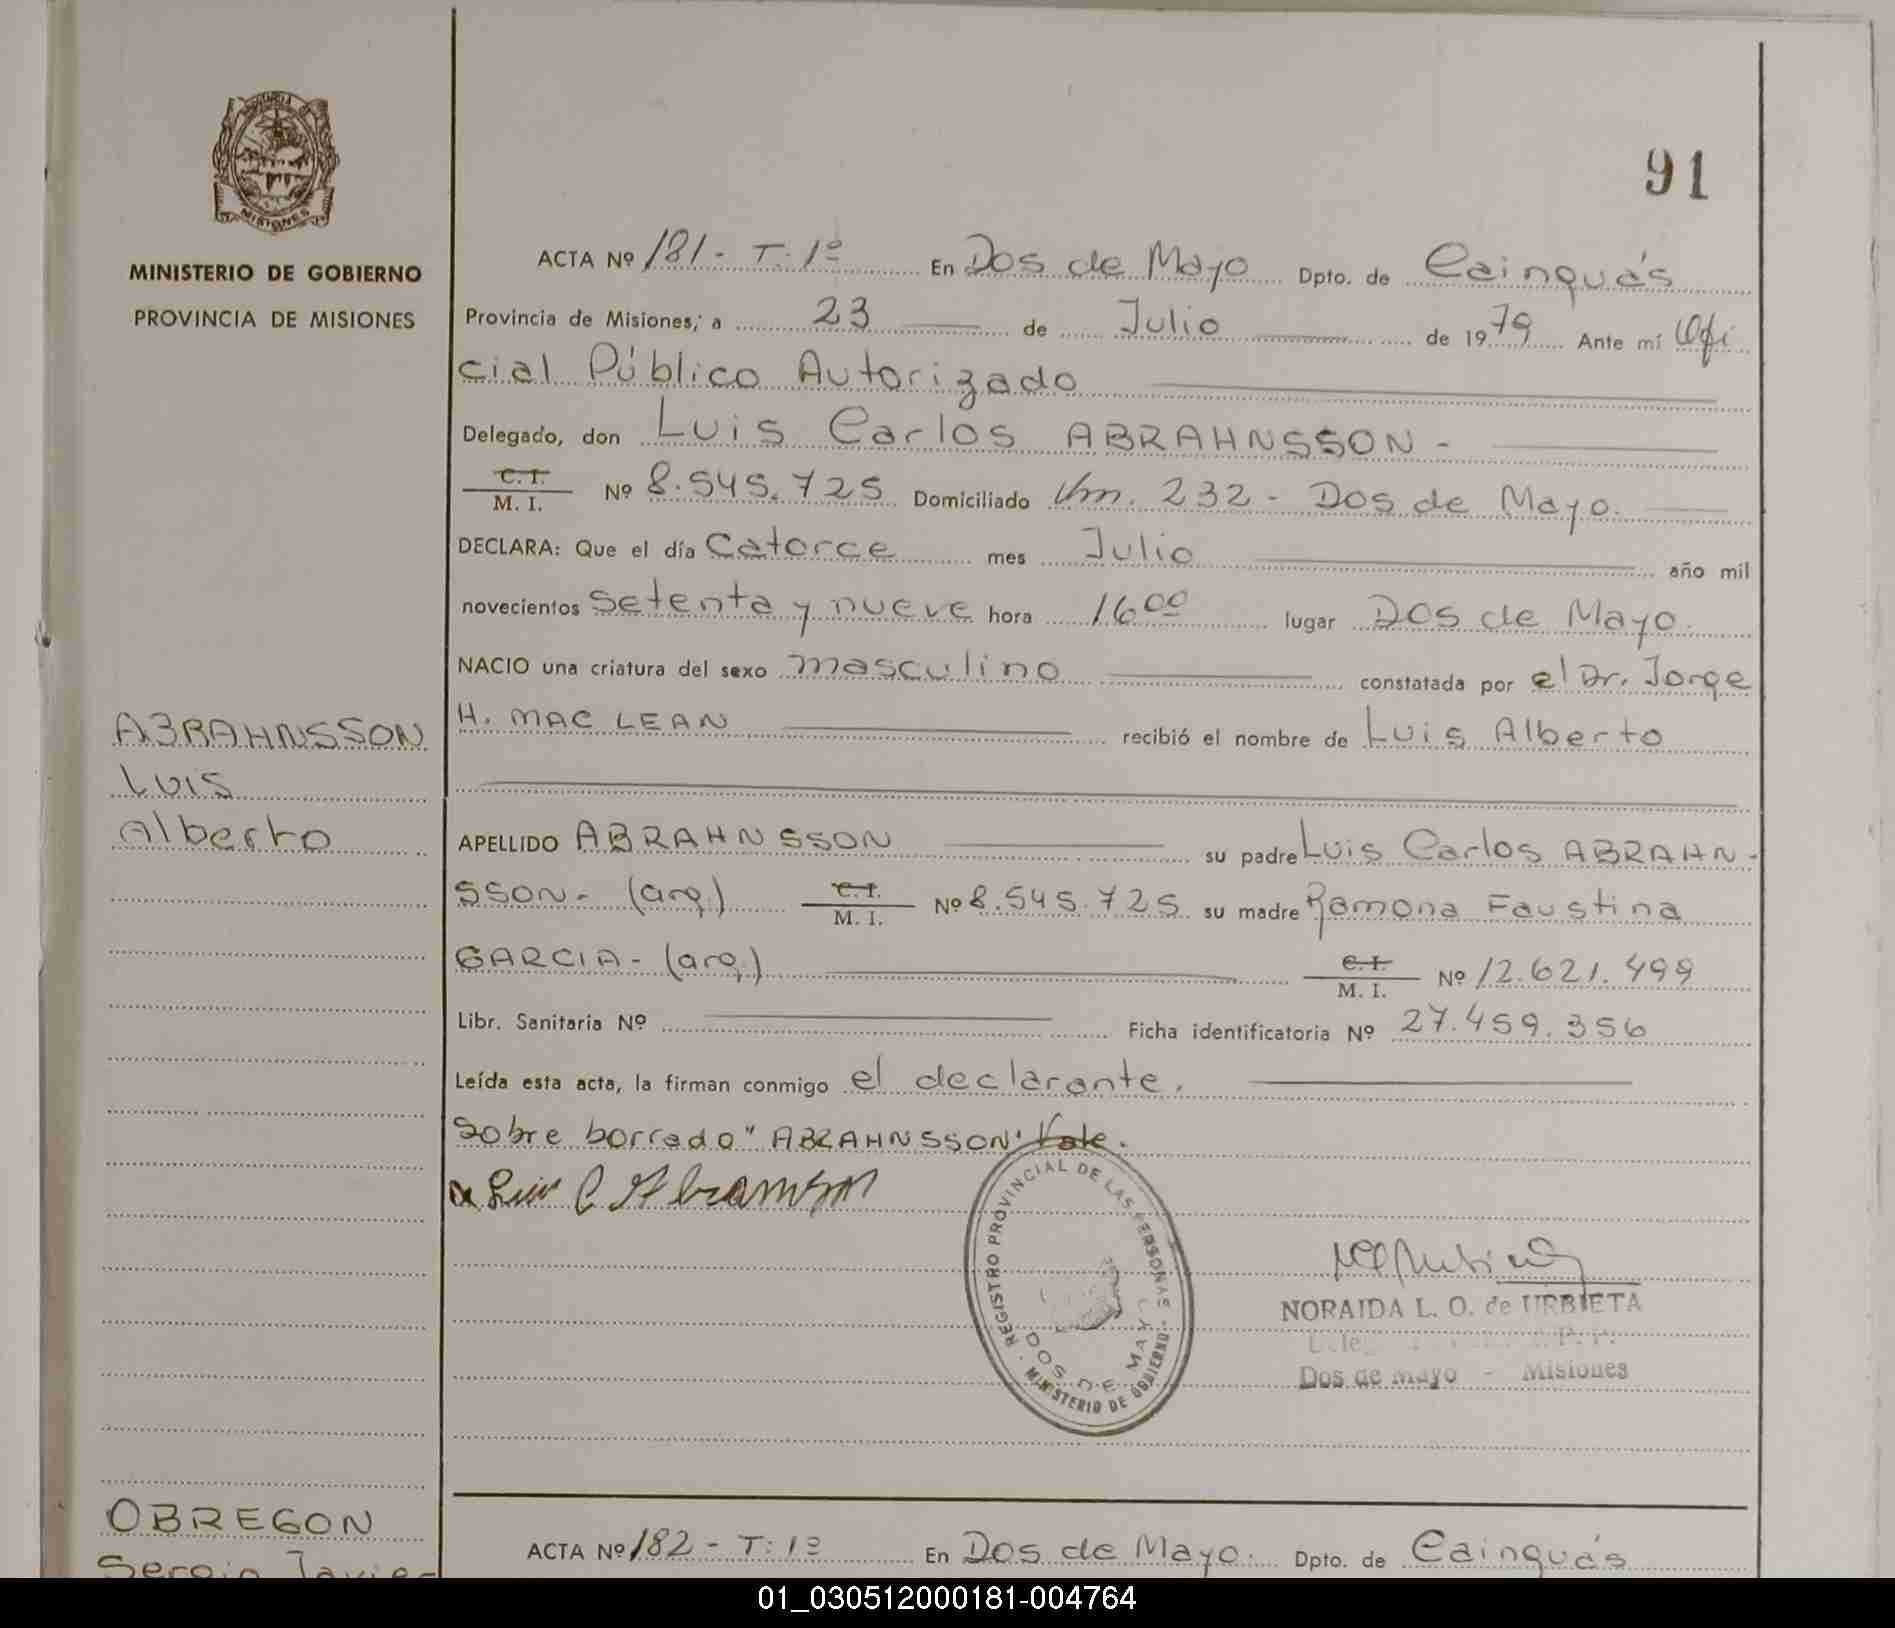 91
MINISTERIO DE GOBIERNO
PROVINCIA DE MISIONES
MISIONES
ACTA Nº 181 - T: 1º En Dos de Mayo Dpto. de Cainguás
Provincia de Misiones, a 23 de Julio de 1979 Ante mí Ofi
cial Público Autorizado
Delegado, don Luis Carlos ABRAHNSSON -
C. I.
M. I. Nº 8.545.725 Domiciliado Km. 232 - Dos de Mayo.
DECLARA: Que el día Catorce mes Julio año mil
novecientos setenta y nueve hora 16 00 lugar Dos de Mayo.
NACIO una criatura del sexo masculino constatada por el Dr. Jorge
H. MAC LEAN recibió el nombre de Luis Alberto
ABRAHNSSON
LUIS
Alberto
APELLIDO ABRAHNSSON su padre Luis Carlos ABRAHN-
SSON - (arg.) C. I. M. I. Nº 8.545.725 su madre Ramona Faustina
GARCIA - (arg.) C. I. M. I. Nº 12.621.499
Libr. Sanitaria Nº Ficha identificatoria Nº 27.459.356
Leída esta acta, la firman conmigo el declarante.
Sobre borrado "ABRAHNSSON" Vale.
Luis C Abramson
REGISTRO PROVINCIAL DE LAS PERSONAS - MINISTERIO DE GOBIERNO -
DOS DE MAYO
NORAIDA L. O. de URBIETA
Dos de Mayo - Misiones
OBREGON
Sergio Javier
ACTA Nº 182 - T: 1º En Dos de Mayo. Dpto. de Cainguás
01_030512000181-004764